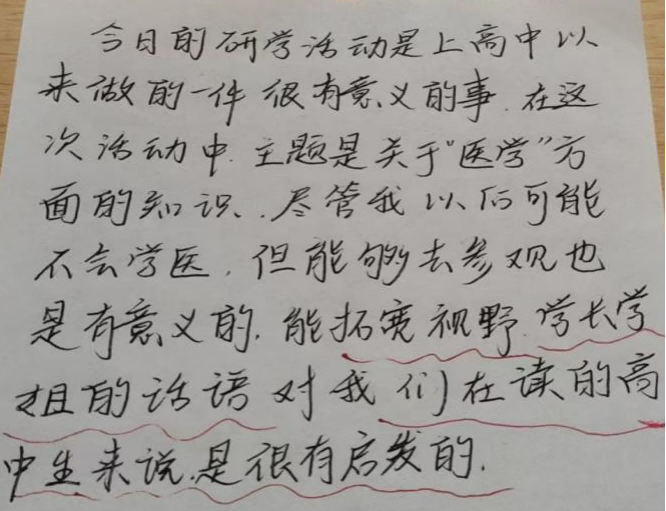 今日的研学活动是上高中以
来做的一件很有意义的事.在这
次活动中.主题是关于"医学"方
面的知识.尽管我以后可能
不会学医.但能够去参观也
是有意义的.能拓宽视野.学长学
姐的话语对我们在读的高
中生来说.是很有启发的.